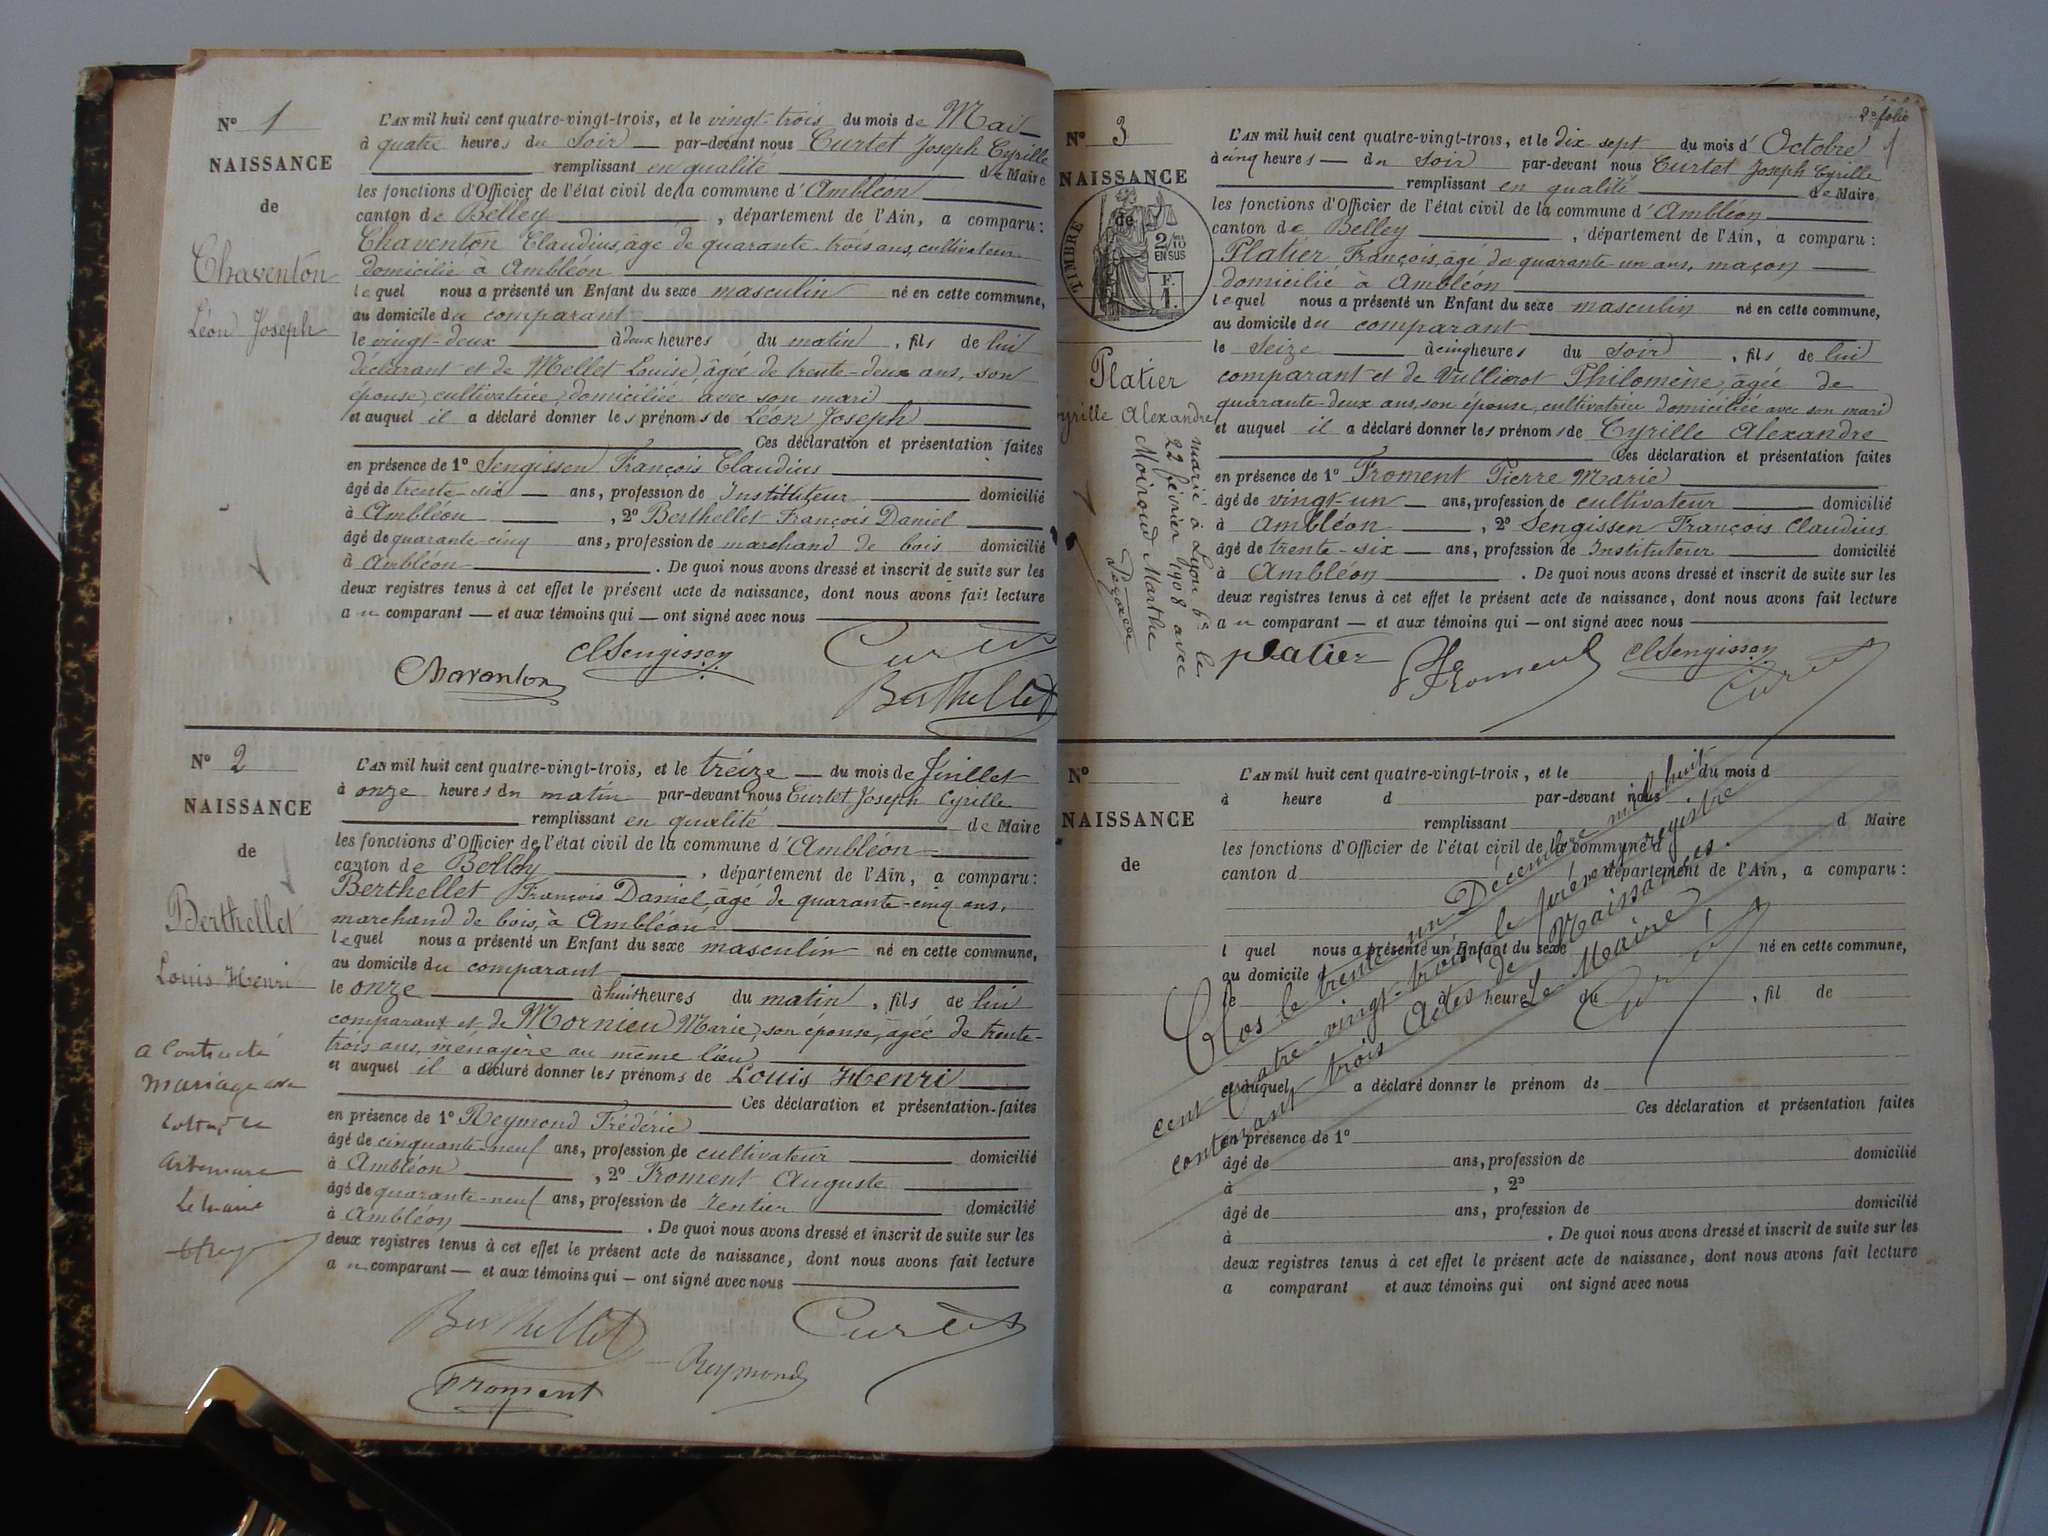 N° 1
NAISSANCE
de
Chaventon
Léon Joseph
L'AN mil huit cent quatre-vingt-trois, et le vingt-trois du mois de Mai
à quatre heures du soir par-devant nous Curtet Joseph Cyrille
remplissant en qualité de Maire
les fonctions d'Officier de l'état civil de la commune d'Ambléon
canton de Belley, département de l'Ain, a comparu:
Chaventon Claudius, âgé de quarante-trois ans, cultivateur
domicilié à Ambléon
lequel nous a présenté un Enfant du sexe masculin né en cette commune,
au domicile du comparant
le vingt-deux à deux heures du matin, fils de lui
déclarant et de Mellet Louise, âgée de trente-deux ans, son
épouse, cultivatrice, domiciliée avec son mari
et auquel il a déclaré donner les prénoms de Léon Joseph
Ces déclaration et présentation faites
en présence de 1° Sengissen François Claudius
âgé de trente-six ans, profession de Instituteur domicilié
à Ambléon, 2° Berthellet François Daniel
âgé de quarante-cinq ans, profession de marchand de bois domicilié
à Ambléon. De quoi nous avons dressé et inscrit de suite sur les
deux registres tenus à cet effet le présent acte de naissance, dont nous avons fait lecture
au comparant — et aux témoins qui — ont signé avec nous
Clsengissen Curtet
Chaventon Berthellet
N° 2
NAISSANCE
de
Berthellet
Louis Henri
a contracté
mariage avec
Artemare
Le maire
L'AN mil huit cent quatre-vingt-trois, et le treize du mois de Juillet
à onze heures du matin par-devant nous Curtet Joseph Cyrille
remplissant en qualité de Maire
les fonctions d'Officier de l'état civil de la commune d'Ambléon
canton de Belley, département de l'Ain, a comparu:
Berthellet François Daniel, âgé de quarante-cinq ans,
marchand de bois, à Ambléon
lequel nous a présenté un Enfant du sexe masculin né en cette commune,
au domicile du comparant
le onze à huit heures du matin, fils de lui
comparant et de Mornieu Marie, son épouse, âgée de trente-
trois ans, ménagère au même lieu
et auquel il a déclaré donner les prénoms de Louis Henri
Ces déclaration et présentation faites
en présence de 1° Reymond Frédéric
âgé de cinquante-neuf ans, profession de cultivateur domicilié
à Ambléon, 2° Froment Auguste
âgé de quarante-neuf ans, profession de rentier domicilié
à Ambléon. De quoi nous avons dressé et inscrit de suite sur les
deux registres tenus à cet effet le présent acte de naissance, dont nous avons fait lecture
au comparant — et aux témoins qui — ont signé avec nous
Berthellet Curtet
Reymond
Froment
2e folio
1
N° 3
NAISSANCE
de
TIMBRE
2/10
EN SUS
F.
1.
Platier
Cyrille Alexandre
marié à Lyon 6e le
22 février 1908 avec
Moiroud Marthe
L'AN mil huit cent quatre-vingt-trois, et le dix sept du mois d'Octobre
à cinq heures du soir par-devant nous Curtet Joseph Cyrille
remplissant en qualité de Maire
les fonctions d'Officier de l'état civil de la commune d'Ambléon
canton de Belley, département de l'Ain, a comparu:
Platier François, âgé de quarante un ans, maçon
domicilié à Ambléon
lequel nous a présenté un Enfant du sexe masculin né en cette commune,
au domicile du comparant
le seize à cinq heures du soir, fils de lui
comparant et de Vulliorot Philomène, âgée de
quarante-deux ans, son épouse, cultivatrice domiciliée avec son mari
et auquel il a déclaré donner les prénoms de Cyrille Alexandre
Ces déclaration et présentation faites
en présence de 1° Froment Pierre Marie
âgé de vingt-un ans, profession de cultivateur domicilié
à Ambléon, 2° Sengissen François Claudius
âgé de trente-six ans, profession de Instituteur domicilié
à Ambléon. De quoi nous avons dressé et inscrit de suite sur les
deux registres tenus à cet effet le présent acte de naissance, dont nous avons fait lecture
au comparant — et aux témoins qui — ont signé avec nous
platier Froment Clsengissen
Curtet
N°
NAISSANCE
de
L'AN mil huit cent quatre-vingt-trois, et le du mois d
à heure d par-devant nous
remplissant d Maire
les fonctions d'Officier de l'état civil de la commune d
canton d département de l'Ain, a comparu:
l quel nous a présenté un Enfant du sexe né en cette commune,
au domicile d
le à heure du , fil de
et auquel a déclaré donner le prénom de
Ces déclaration et présentation faites
en présence de 1°
âgé de ans, profession de domicilié
à , 2°
âgé de ans, profession de domicilié
à . De quoi nous avons dressé et inscrit de suite sur les
deux registres tenus à cet effet le présent acte de naissance, dont nous avons fait lecture
a comparant et aux témoins qui ont signé avec nous
Clos le trente un Décembre mil huit
cent quatre vingt-trois, le présent registre
contenant trois Actes de Naissances.
Le Maire,
Curtet